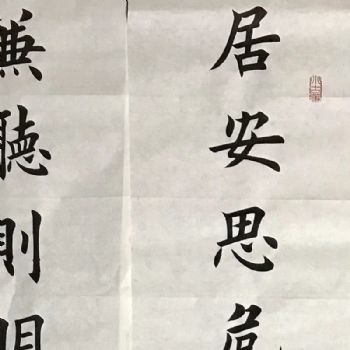 居安思危
兼聽則明